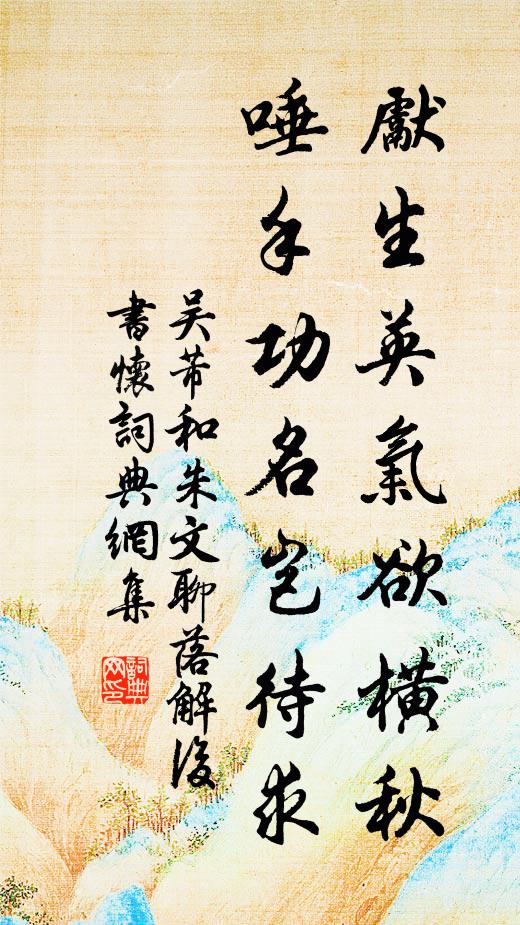 獻生英氣欲橫秋
唾手功名岂待求
吴芾和朱文聊落解後
書懷詞典網集
詞典网印